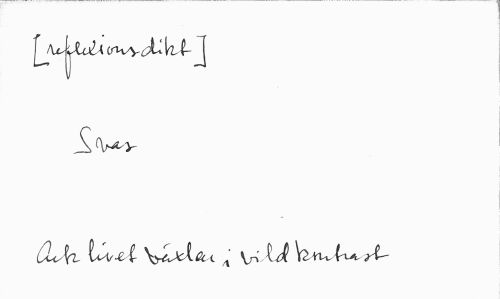 [reflexionsdikt]
Svar
Ack livet växlar i vild kontrast